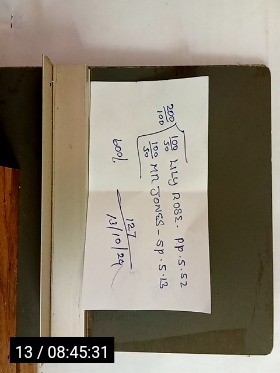 200/100
100/50 LILY ROSE. PP.S.52
100/50 MR JONES - SP.S.13
600/
127
13/10/24
13 / 08:45:31